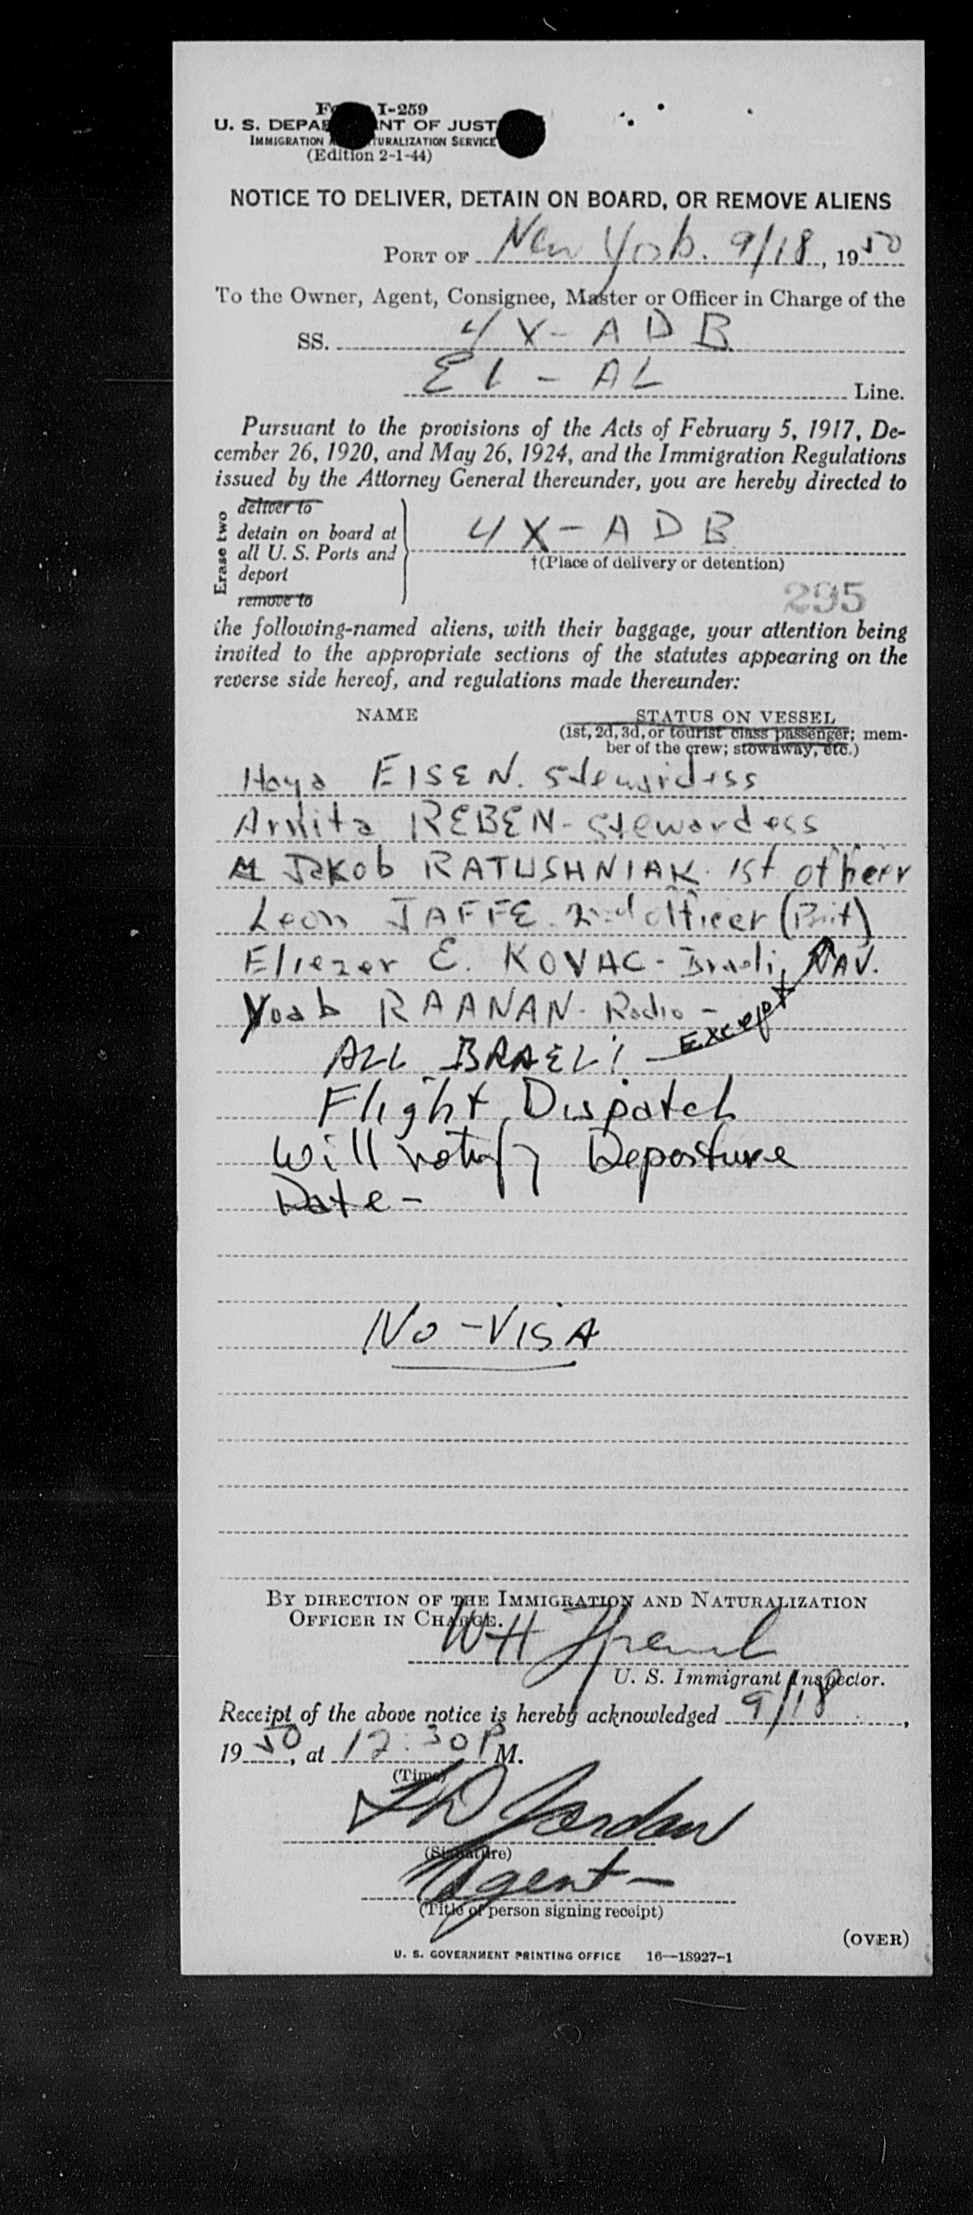 Form I-259
U. S. DEPARTMENT OF JUSTICE
IMMIGRATION AND NATURALIZATION SERVICE
(Edition 2-1-44)
NOTICE TO DELIVER, DETAIN ON BOARD, OR REMOVE ALIENS
PORT OF New York. 9/18, 1950
To the Owner, Agent, Consignee, Master or Officer in Charge of the
SS. 4X-ADB
El-AL Line.
Pursuant to the provisions of the Acts of February 5, 1917, De-
cember 26, 1920, and May 26, 1924, and the Immigration Regulations
issued by the Attorney General thereunder, you are hereby directed to
Erase two
deliver to
detain on board at
all U. S. Ports and
deport
remove to
4X-ADB
†(Place of delivery or detention)
295
the following-named aliens, with their baggage, your attention being
invited to the appropriate sections of the statutes appearing on the
reverse side hereof, and regulations made thereunder:
NAME STATUS ON VESSEL
(1st, 2d, 3d, or tourist class passenger; mem-
ber of the crew; stowaway, etc.)
Haya EISEN. Stewardess
Arnita REBEN - Stewardess
Jakob RATUSHNIAK. 1st officer
Leon JAFFE. 2nd officer (Brit)
Eliezer E. KOVAC - Israeli, NAV.
Yoab RAANAN - Radio -
ALL ISRAELI - Except
Flight Dispatch
Will notify Departure
Date -
NO-VISA
BY DIRECTION OF THE IMMIGRATION AND NATURALIZATION
OFFICER IN CHARGE.
WH French
U. S. Immigrant Inspector.
Receipt of the above notice is hereby acknowledged 9/18,
1950, at 12:30 P M.
(Time)
Jordan
(Signature)
Agent -
(Title of person signing receipt)
(OVER)
U. S. GOVERNMENT PRINTING OFFICE 16—18927-1